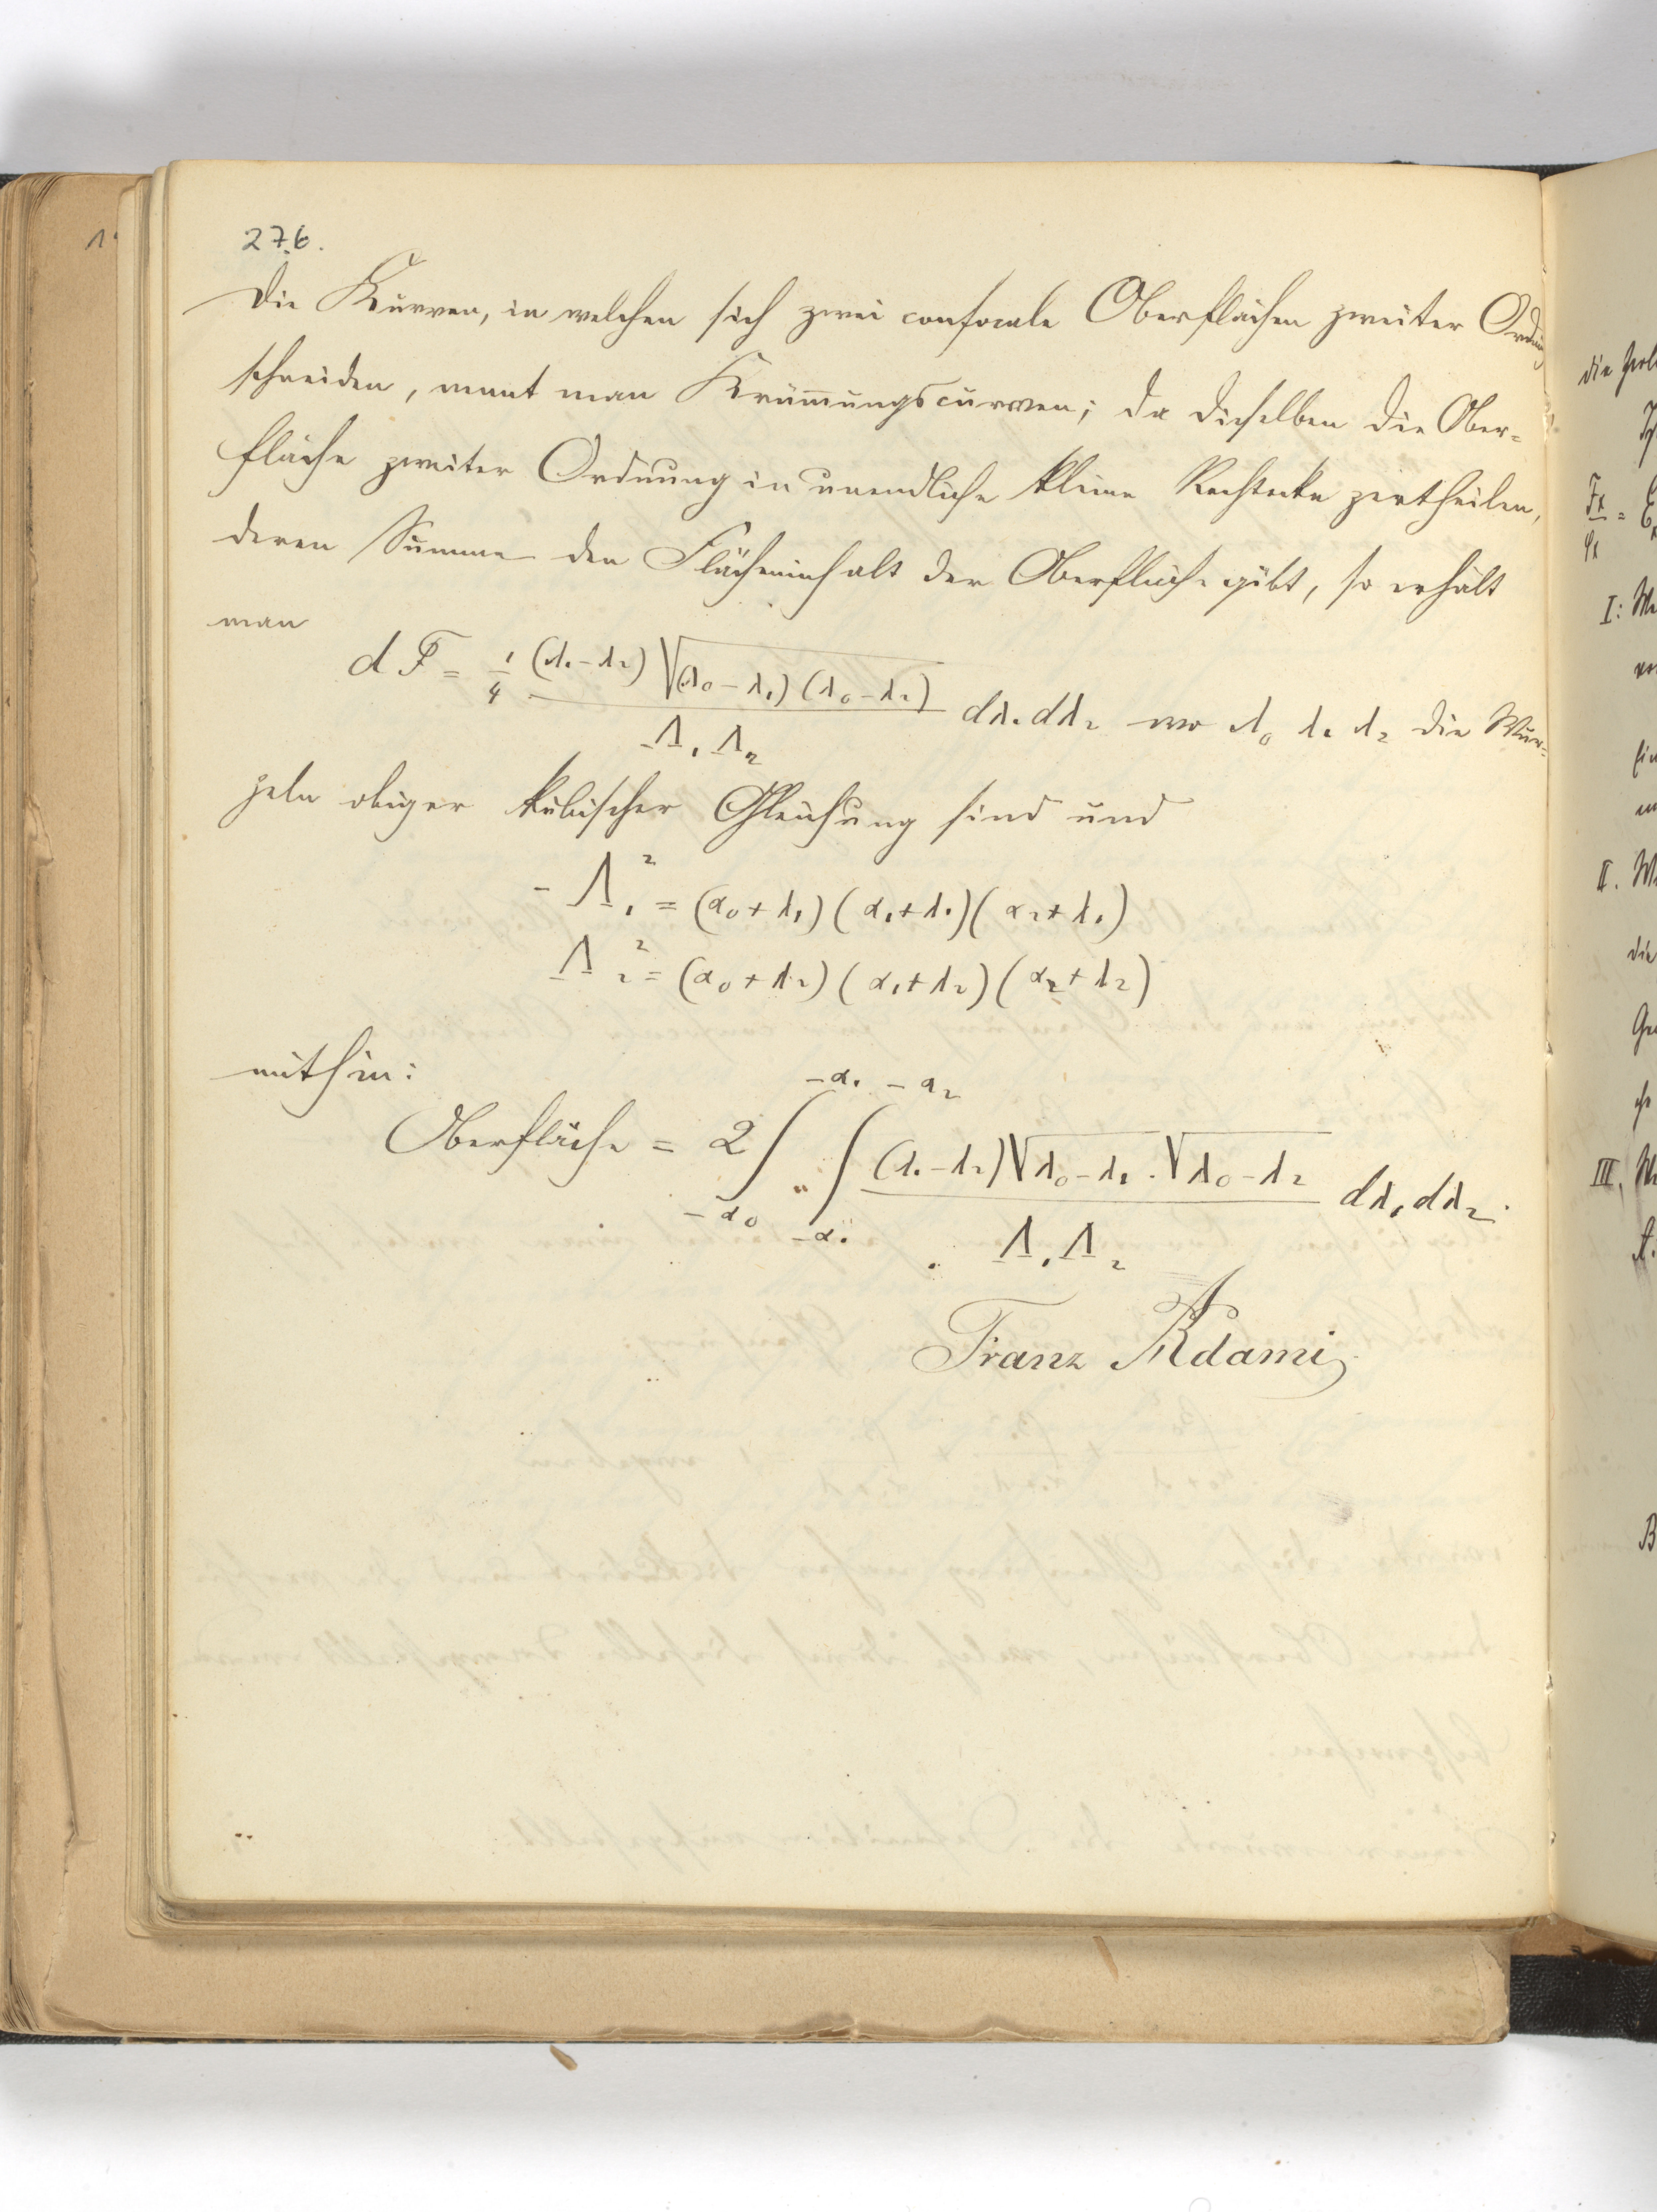 276.
Die Kurven, in welchen sich zwei confocale Oberflächen zweiter Ordnung
schneiden, nennt man Krümmungscurven; da dieselben die Ober-
fläche zweiter Ordnung in unendliche kleine Rechtecke zertheilen,
deren Summe den Flächeninhalt der Oberfläche gibt, so erhält
man
dF = 1/4 (λ₁-λ₂) √(λ₀-λ₁)(λ₀-λ₂) / Λ₁Λ₂ dλ₁dλ₂ wo λ₀ λ₁ λ₂ die Wur-
zeln obiger kubischer Gleichung sind und
- Λ₁² = (α₀+λ₁)(α₁+λ₁)(α₂+λ₁)
Λ₂² = (α₀+λ₂)(α₁+λ₂)(α₂+λ₂)
mithin:
Oberfläche = 2 ∫_{-α₀}^{-α₁} ∫_{-α₁}^{-α₂} (λ₁-λ₂)√λ₀-λ₁ . √λ₀-λ₂ / Λ₁Λ₂ dλ₁dλ₂.
Franz Adami